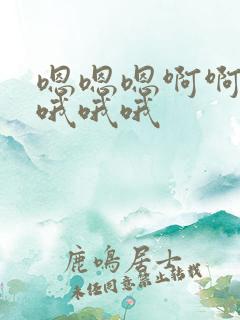 嗯嗯嗯啊啊
哦哦哦
鹿鸣居士
未经同意禁止转载